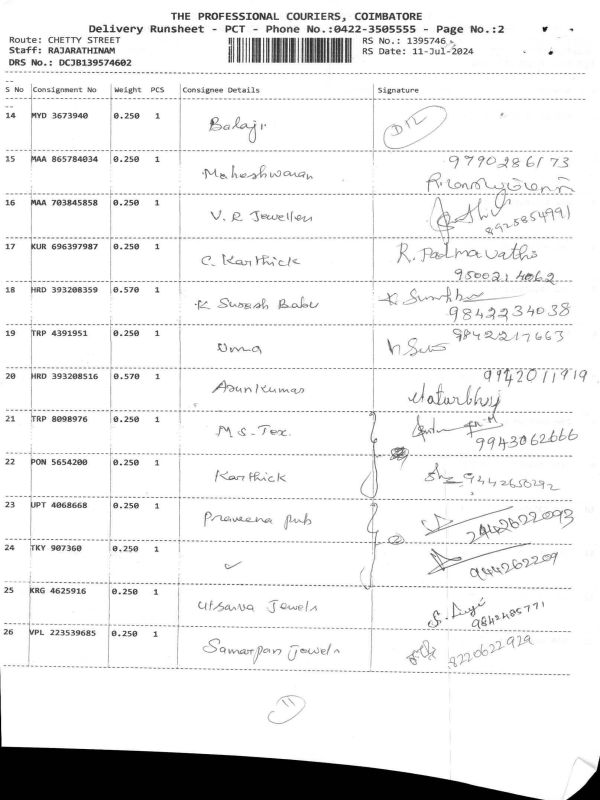 THE PROFESSIONAL COURIERS, COIMBATORE
Delivery Runsheet - PCT - Phone No.:0422-3505555 - Page No.:2
Route: CHETTY STREET
RS No.: 1395746
Staff: RAJARATHINAM
RS Date: 11-Jul-2024
DRS No.: DCJB139574602
S No Consignment No Weight PCS Consignee Details Signature
14 MYD 3673940 0.250 1 Balaji DTL
15 MAA 865784034 0.250 1 Maheshwaran 9790286173
16 MAA 703845858 0.250 1 V.R Jewellers 8925854991
17 KUR 696397987 0.250 1 C. Karthick R. Padmavathi
9500214062
18 HRD 393208359 0.570 1 K Suresh Babu
9842234038
19 TRP 4391951 0.250 1 Uma 9842217663
20 HRD 393208516 0.570 1 Arunkumar 9942071919
21 TRP 8098976 0.250 1 M.S. Tex.
9943062666
22 PON 5654200 0.250 1 Karthick 9442650292
23 UPT 4068668 0.250 1 Praveena pub
24 TKY 907360 0.250 1 ✓ 944262209
25 KRG 4625916 0.250 1 Utsarva Jewels
9842485771
26 VPL 223539685 0.250 1 Samarpan Jewels 8220622929
11